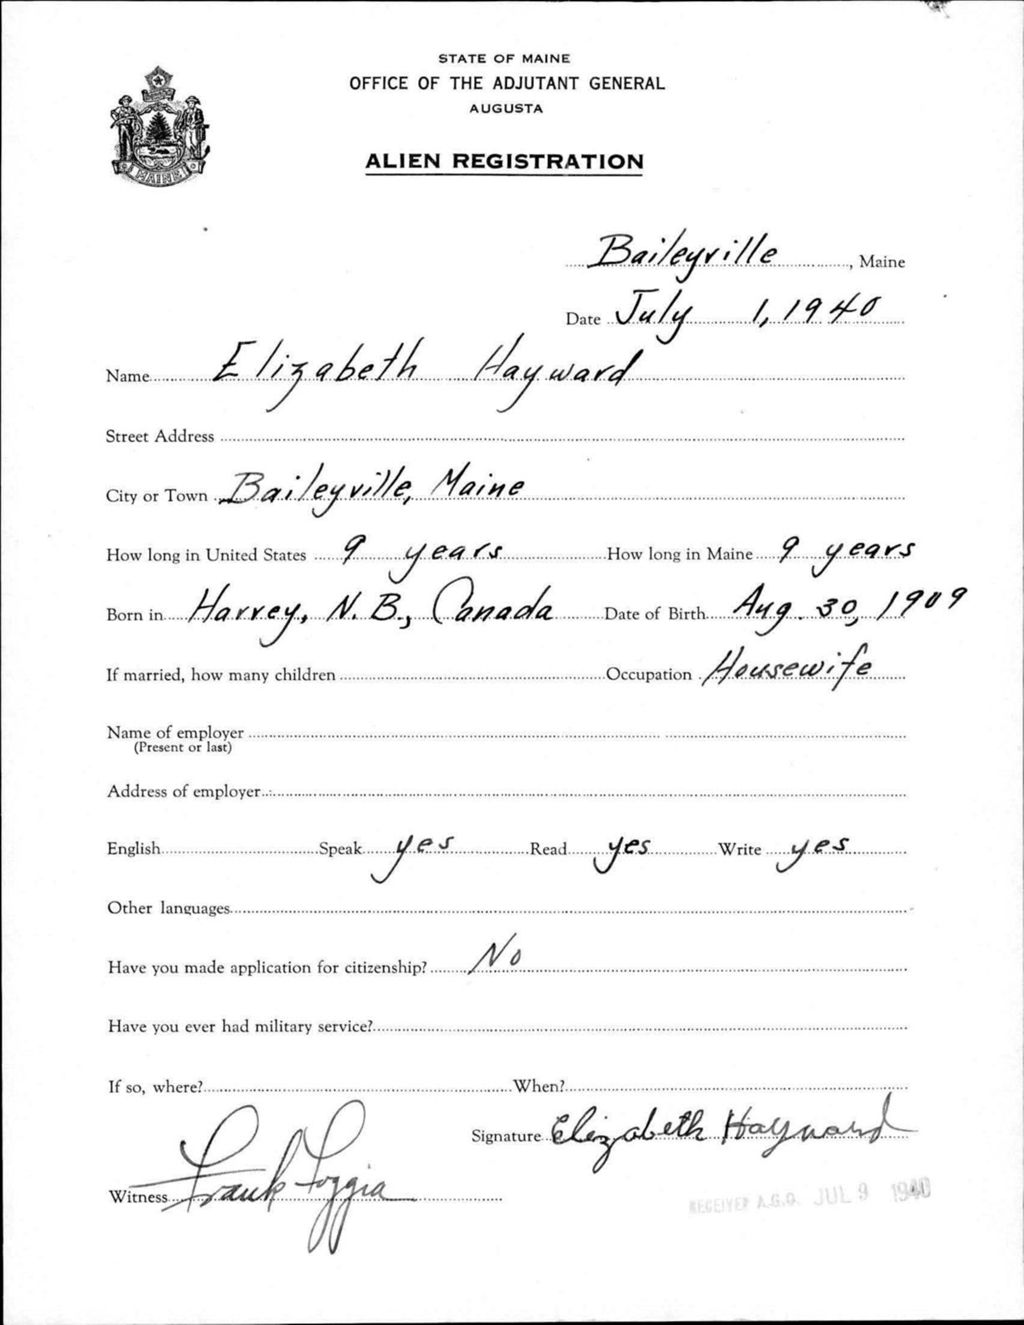 STATE OF MAINE
OFFICE OF THE ADJUTANT GENERAL
AUGUSTA
ALIEN REGISTRATION
MAINE
Baileyville, Maine
Date July 1, 1940
Name Elizabeth Hayward
Street Address
City or Town Baileyville, Maine
How long in United States 9 years How long in Maine 9 years
Born in Harvey, N. B., Canada Date of Birth Aug. 30, 1909
If married, how many children Occupation Housewife
Name of employer
(Present or last)
Address of employer
English Speak yes Read yes Write yes
Other languages
Have you made application for citizenship? No
Have you ever had military service?
If so, where? When?
Signature Elizabeth Hayward
Witness Frank Foggia
RECEIVED A.G.O. JUL 9 1940